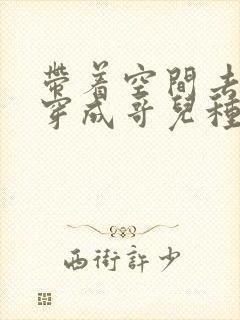 帶着空間去
穿成哥兒種
西街許少